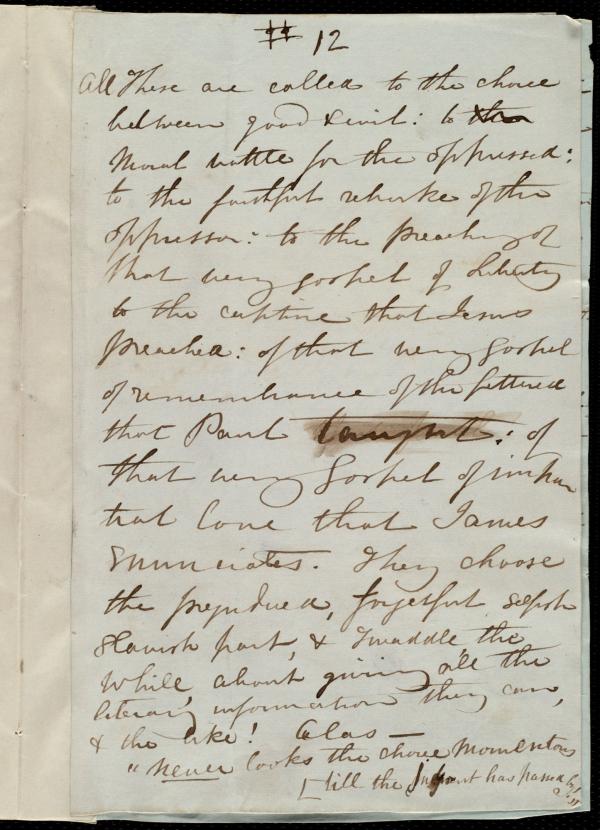 12
All These are called to the choice
between good & evil: to the
moral battle for the oppressed:
to the faithful rebuke of the
oppressor: to the preaching of
that very gospel of Liberty
to the captive that Jesus
preached: of that very Gospel
of remembrance of the fettered
that Paul taught: of
that very Gospel of impar
tial love that James
Enunciates. They choose
the prejudiced, forgetful, selfish
slavish part, & twaddle the
while, about giving all the
literary information they can,
& the like! Alas —
"Never looks the choice momentous
[till the judgment has passed by!"